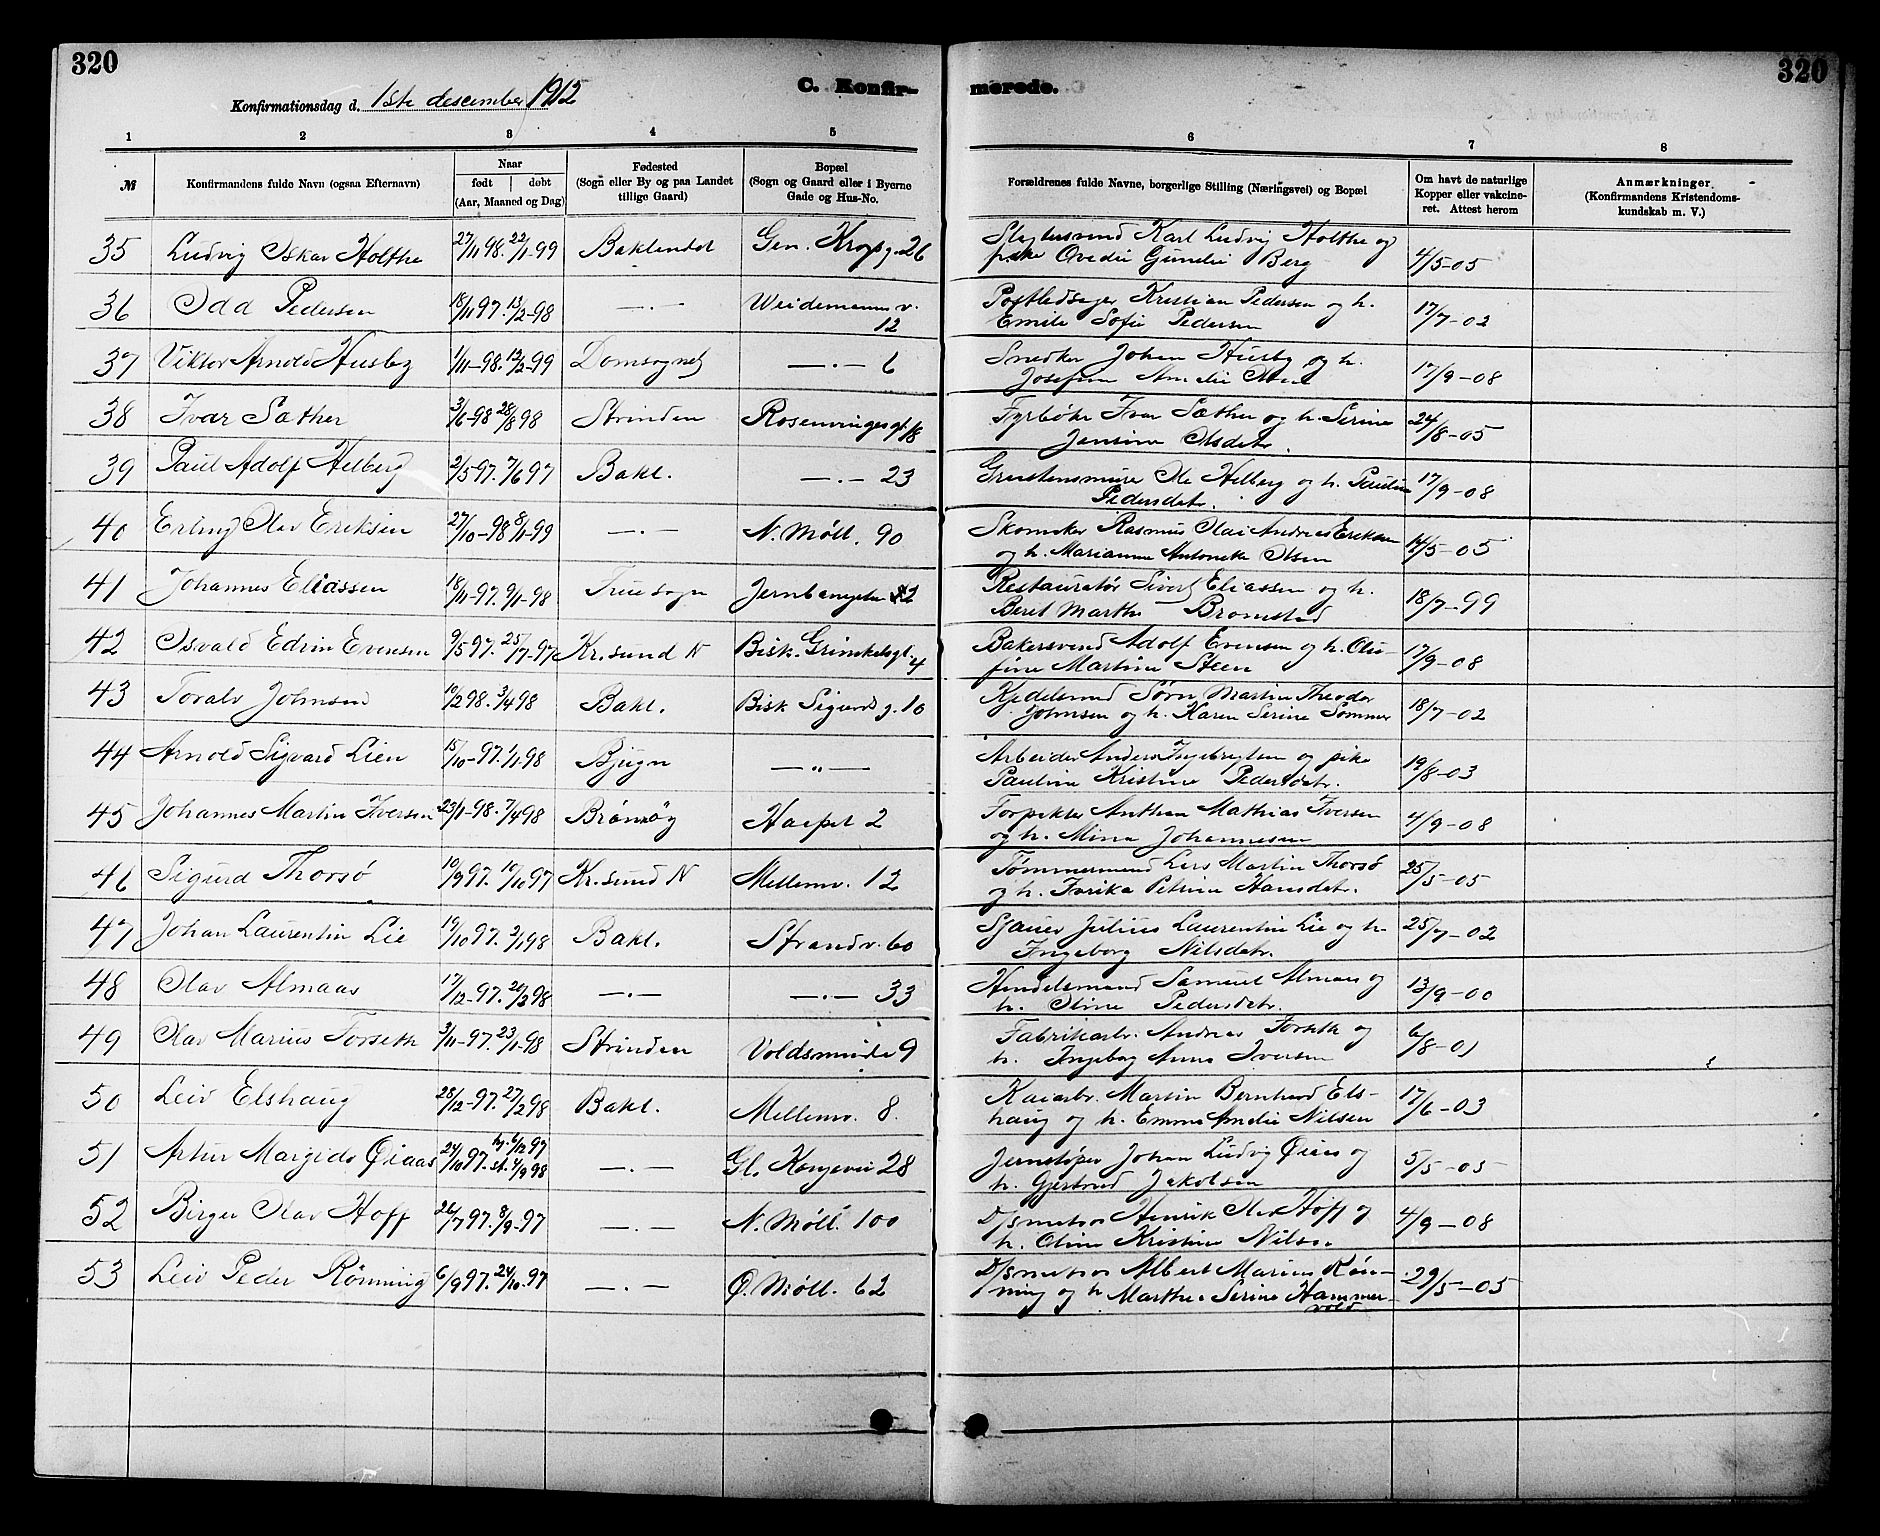 320
320
Konfirmationsdag d. 1ste desember 1912
C. Konfir-
merede.
1 2 3 4 5
6 7 8
№
Konfirmandens fulde Navn (ogsaa Efternavn)
Naar
født | døbt
(Aar, Maaned og Dag)
Fødested
(Sogn eller By og paa Landet
tillige Gaard)
Bopæl
(Sogn og Gaard eller i Byerne
Gade og Hus-No.
Forældrenes fulde Navne, borgerlige Stilling (Næringsvei) og Bopæl
Om havt de naturlige
Kopper eller vakcine-
ret. Attest herom
Anmærkninger
(Konfirmandens Kristendoms-
kundskab m. V.)
35 Ludvig Oskar Holthe 27/11 98. 22/1-99 Baklandet Gen. Krogs g. 26
Karl Ludvig Holthe og
pike Ovedie Gunelie Berg 4/5-05
36 Odd Pedersen 18/11 97. 13/2-98 —.— Weidemanns v.
12
Kristian Pedersen og h.
Emilie Sofie Pedersen 17/7-02
37 Viktor Arnold Husby 1/11-98. 12/2-99 Domsognet —.— 6
Snedker Johan Husby og h.
Josefine Amalie Moe 17/9-08
38 Ivar Sæther 3/6-98 28/8 98 Strinden Rosenvinges gt. 18
Fyrbøter Ivar Sæther og h. Serine
Jensine Olsdatr. 24/8-05
39 Paul Adolf Helberg 2/5 97. 7/6 97 Bakl. —.— 23
Ole Helberg og h. Pauline
Pedersdatr. 17/9-08
40 Erling Olav Eriksen 27/10-98 8/1-99 —.— N. Møll. 90
Skomaker Rasmus Olai Andreas Eriksen
og h. Marianne Antonette Olsen 14/5-05
41 Johannes Eliassen 18/11-97. 9/1-98 Frue sogn 2
Restauratør Sivert Eliassen og h.
Beret Marthe Bromstad 18/7-99
42 Osvald Edvin Evensen 9/5 97. 25/7-97 Kr.sund N Bisk. Grimkelsgt. 4
Bakersvend Adolf Evensen og h. Olu-
fine Martine Steen 17/9-08
43 Toralv Johnsen 10/2 98. 3/4 98 Bakl. Bisk Sigurds g. 10
Kjedelsmed Sørn Martin Theodor
Johnsen og h. Karen Serine Sommer 18/7-02
44 Arnold Sigvard Lien 15/10-97. 1/1 98 Bjugn —„—
Arbeider Anders Ingebrigtsen og pike
Pauline Kristine Pedersdatr. 19/8-03
45 Johannes Martin Iversen 23/1-98. 7/4 98 Brønnøy 2
Anthon Mathias Iversen
og h. Mina Johannesen 4/9-08
46 Sigurd Thorsø 10/9 97. 10/10 97 Kr.sund N Mellemv. 12
Tømmermand Lars Martin Thorsø
og h. Fredrika Petrina Hansdatr. 25/5-05
47 Johan Laurentin Lie 19/10 97. 2/1 98 Bakl. Strandv. 60
Sjauer Julius Laurentin Lie og h.
Ingeborg Nilsdatr. 25/7-02
48 Olav Almaas 17/12-97. 20/3 98 —.— —.— 33
Handelsmand Samuel Almaas og
h. Oline Pedersdatr. 13/9-00
49 Olav Marius Forseth 3/11-97. 23/1-98 Strinden Voldsminde 9
Fabrikarb. Andreas Forseth og
h. Ingeborg Anna Iversen 6/8-01
50 Leiv Elshaug 28/12-97. 27/2 98 Bakl. Mellemv. 8.
Kaiarb. Martin Bernhard Els-
haug og h. Emma Amalie Nilsen 17/6-03
51 Artur Margido Øiaas 24/10 97. hj. 6/12 97
st. 4/9 98 —.— Gl. Kongevei 28
Jernstøper Johan Ludvig Øiaas og
h. Gjertrud Jakobsen 5/5-05
52 Birger Olav Hoff 26/7 97. 8/9-97 —.— N. Møll. 100
Henrik Olav Hoff og
h. Oline Kristine Nilsen 4/9-08
53 Leiv Peder Rønning 6/9 97. 24/10.97 —.— Ø. Møll. 62
Albert Marius Røn-
ning og h Marthe Serine Hammer-
vold 29/5-05